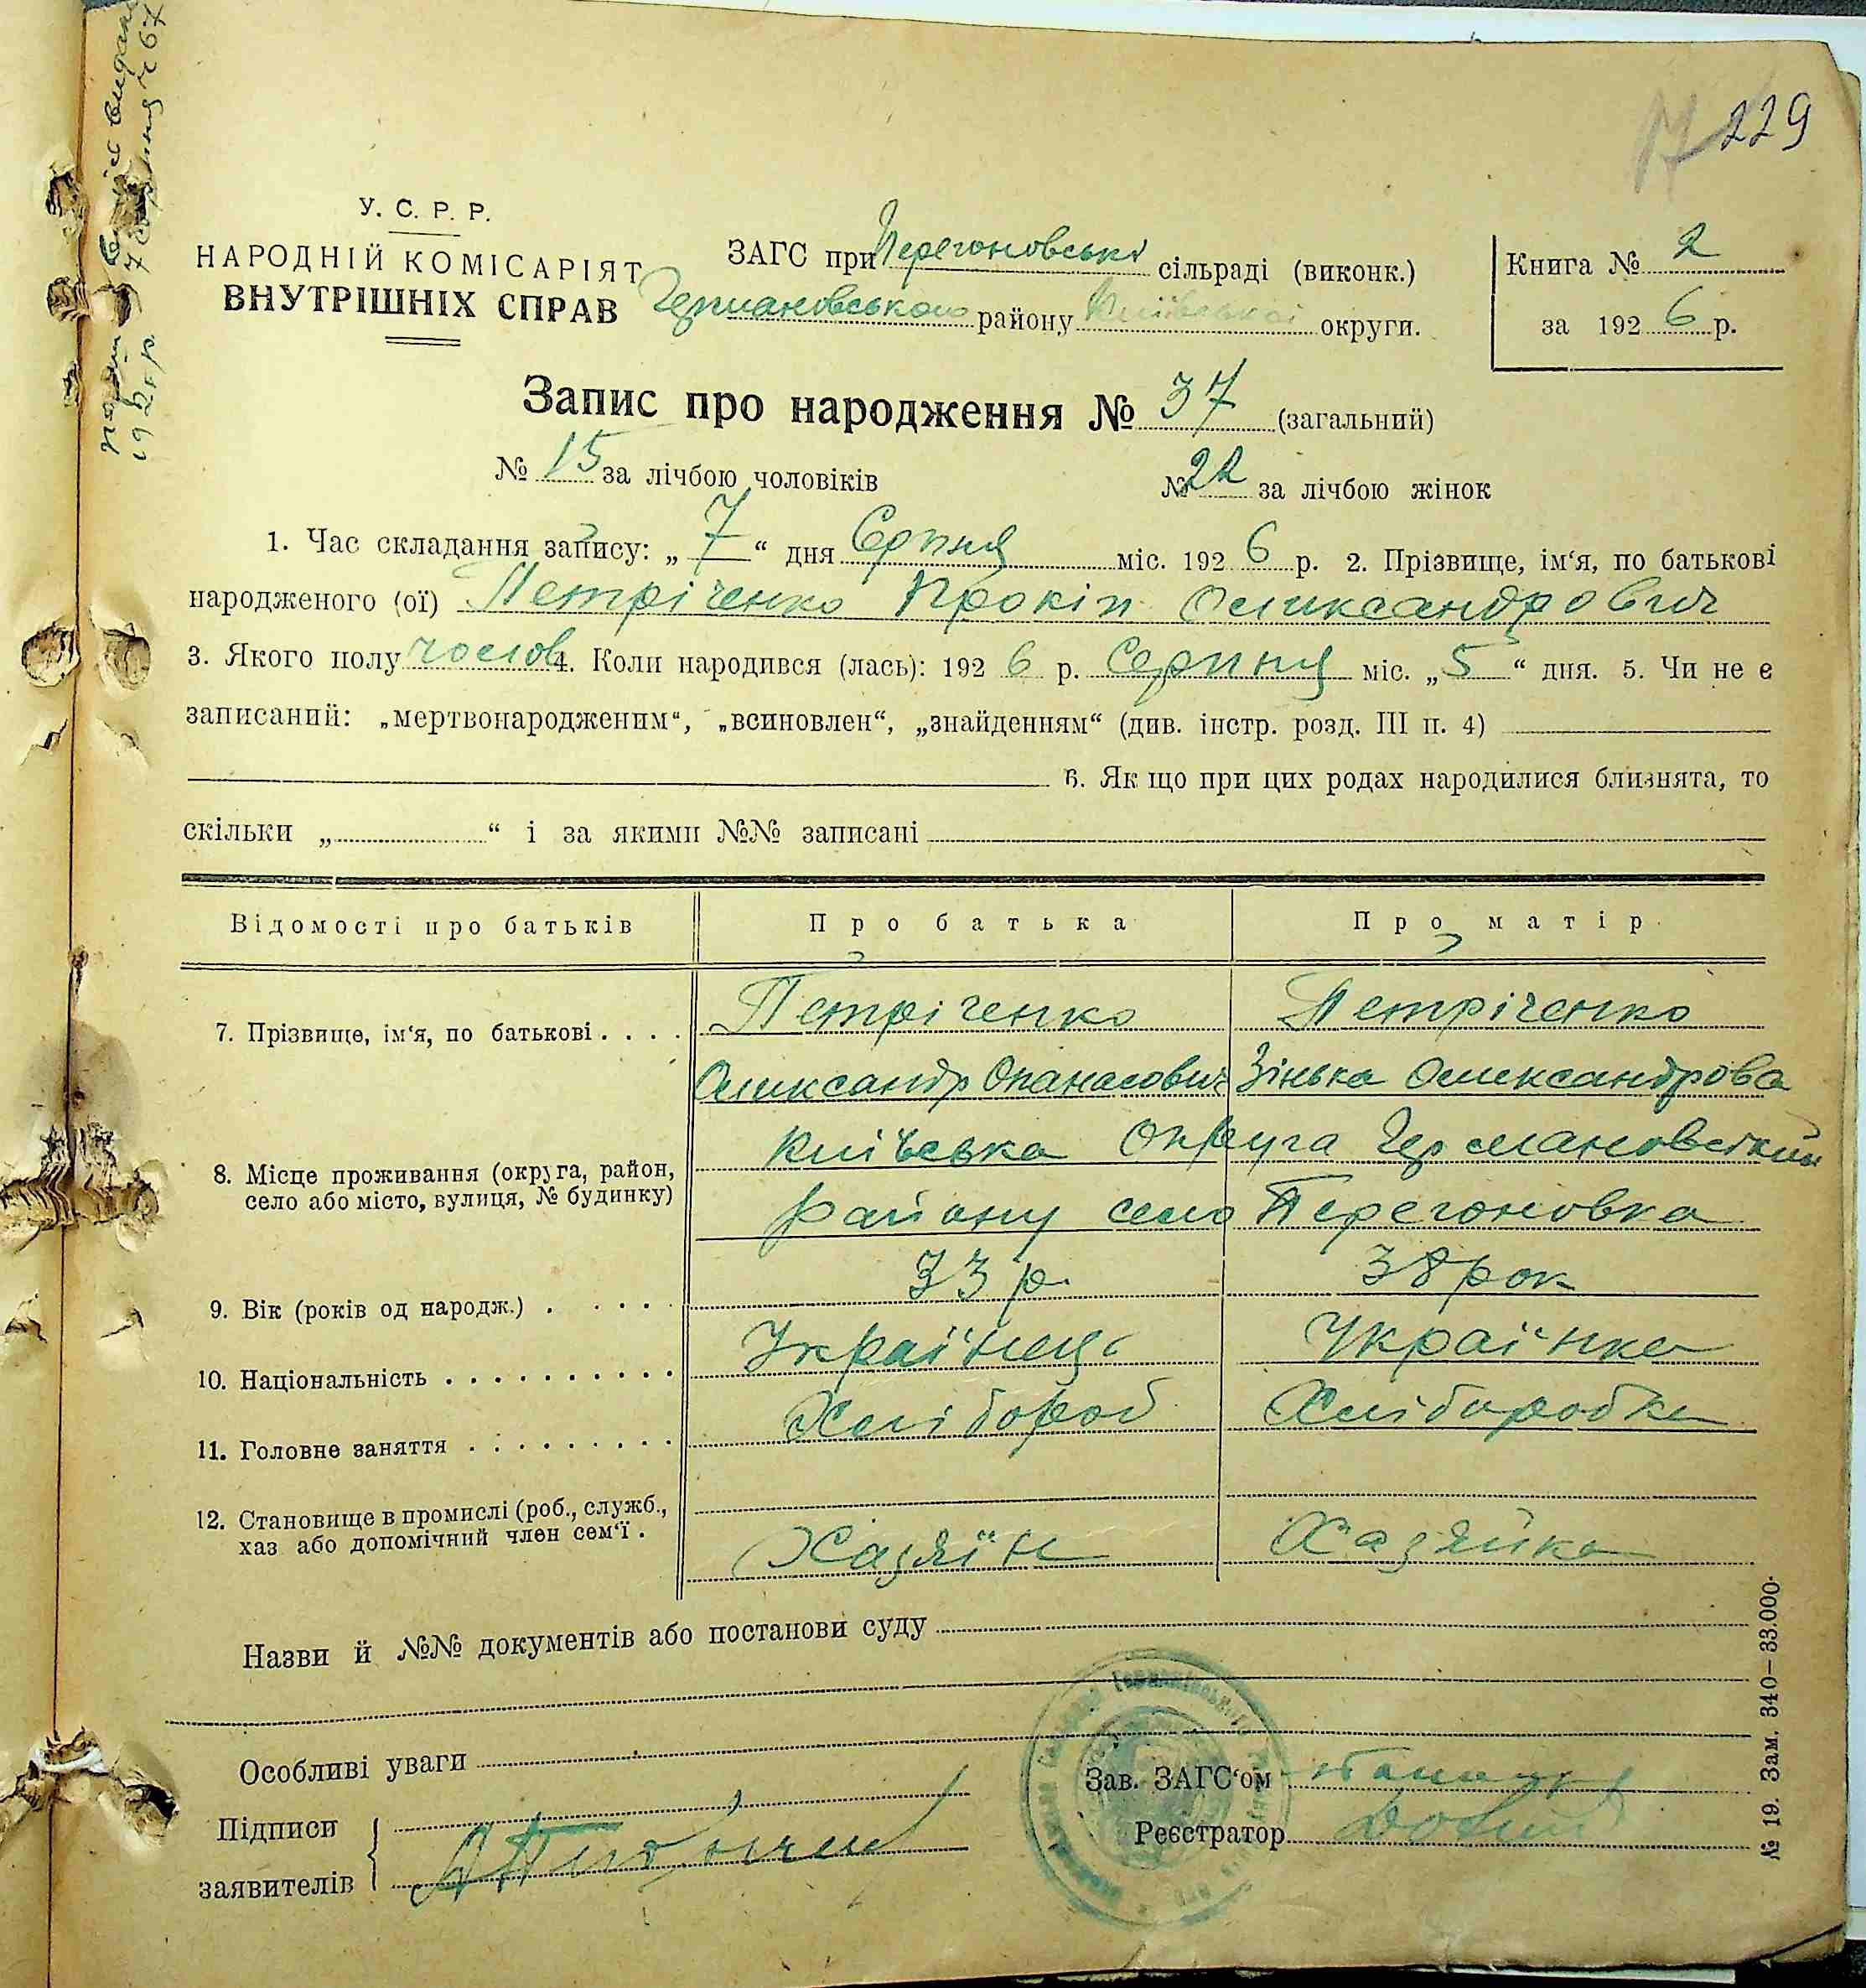 229
У. С. Р. Р.
НАРОДНІЙ КОМІСАРІЯТ
ВНУТРІШНІХ СПРАВ
ЗАГС при Перегоновські сільраді (виконк.)
Германовського району Київської округи.
Книга № 2
за 1926 р.
Запис про народження № 37 (загальний)
№ 15 за лічбою чоловіків № 22 за лічбою жінок
1. Час складання запису: „7“ дня Серпня міс. 1926 р. 2. Прізвище, ім‘я, по батькові
народженого (ої) Петріченко Прокіп Олександрович
3. Якого полу чолов 4. Коли народився (лась): 1926 р. Серпня міс. „5“ дня. 5. Чи не є
записаний: „мертвонародженим“, „всиновлен“, „знайденням“ (див. інстр. розд. III п. 4)
6. Як що при цих родах народилися близнята, то
скільки „ “ і за якими №№ записані
Відомості про батьків Про батька Про матір
7. Прізвище, ім‘я, по батькові . . . . Петріченко Петріченко
Олександр Опанасович Зінька Олександрова
8. Місце проживання (округа, район, Київська Округа Германовський
село або місто, вулиця, № будинку) Району село Перегоновка
9. Вік (років од народж.) . . . . . 33 р. 38 рок
10. Національність . . . . . . . . . . Українець Українка
11. Головне заняття . . . . . . . . . Хлібороб Хліборобка
12. Становище в промислі (роб., служб.,
хаз або допомічний член сем‘ї . Хазяїн Хазяйка
Назви й №№ документів або постанови суду
Особливі уваги
Зав. ЗАГС‘ом
Підписи
заявителів
Реєстратор
№ 19. Зам. 340—33.000.